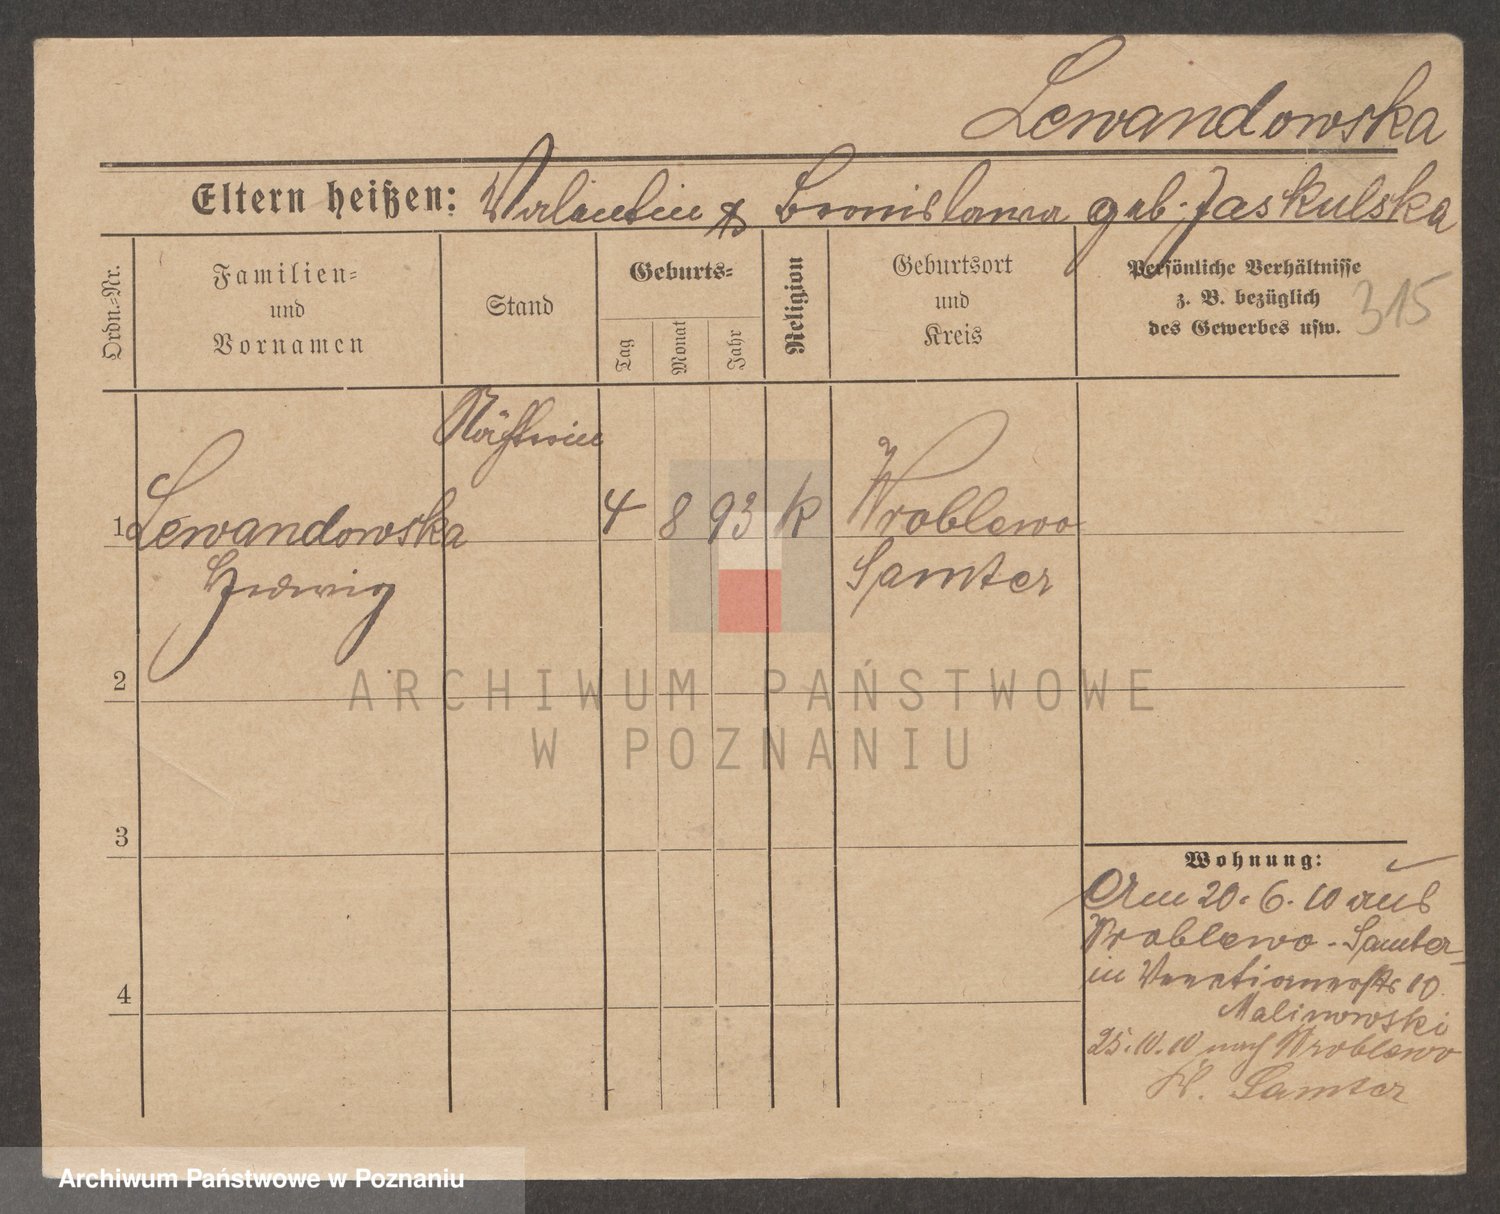 Lewandowska
Eltern heißen: Valentin & Bronislawa geb. Jaskulska
Ordn.-Nr.
Familien-
und
Vornamen
Stand
Geburts-
Tag
Monat
Jahr
Religion
Geburtsort
und
Kreis
Persönliche Verhältnisse
z. B. bezüglich
des Gewerbes usw.
315
Nähterin
1 Lewandowska 4 8 93 k Wroblewo
Hedwig Samter
2
3
4
Wohnung:
Am 20.6.10 aus
Wroblewo - Samter
in 10
Malinowski
25.10.10 nach Wroblewo
K. Samter
ARCHIWUM PAŃSTWOWE
W POZNANIU
Archiwum Państwowe w Poznaniu